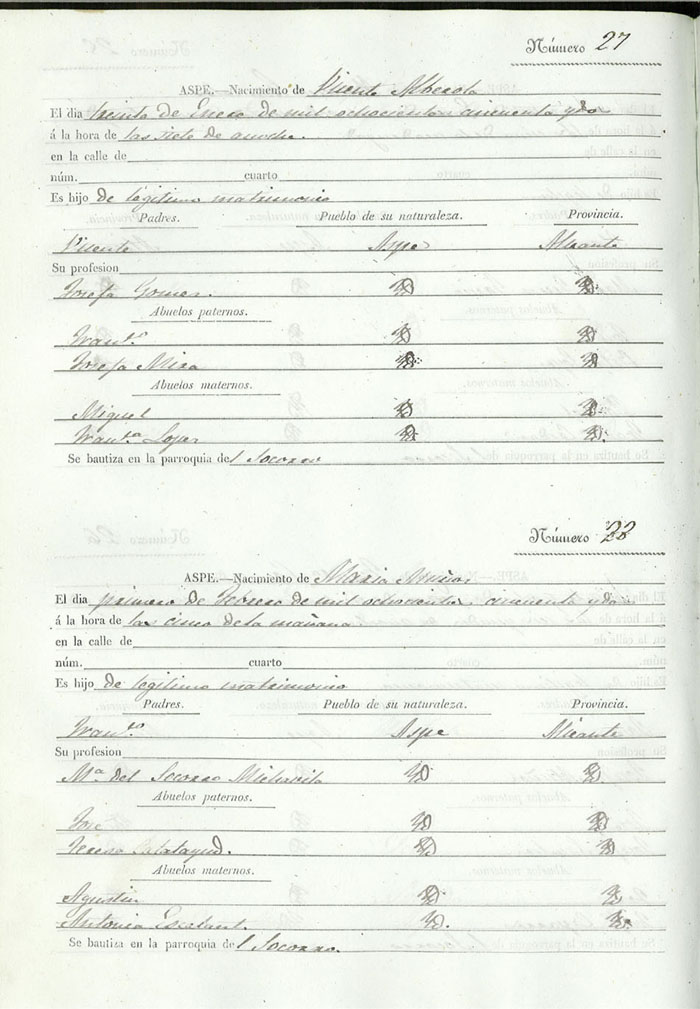 Número 27
ASPE.—Nacimiento de Vicente Alberola
El dia treinta de Enero de mil ochocientos cincuenta y dos
á la hora de las siete de anoche.
en la calle de
núm. cuarto
Es hijo de legitimo matrimonio
Padres. Pueblo de su naturaleza. Provincia.
Vicente Aspe Alicante
Su profesion
Josefa Gomez.
Abuelos paternos.
Fran.co
Josefa Mira
Abuelos maternos.
Miguel
Fran.ca Lopez
Se bautiza en la parroquia del Socorro
Número 28
ASPE.—Nacimiento de Maria Muñoz
El dia primero de Febrero de mil ochocientos cincuenta y dos
á la hora de las cinco de la mañana.
en la calle de
núm. cuarto
Es hijo de legitimo matrimonio
Padres. Pueblo de su naturaleza. Provincia.
Fran.co Aspe Alicante
Su profesion
M.a del Socorro Michavila
Abuelos paternos.
Jose
Teresa Calatayud.
Abuelos maternos.
Agustin
Antonia
Se bautiza en la parroquia del Socorro.